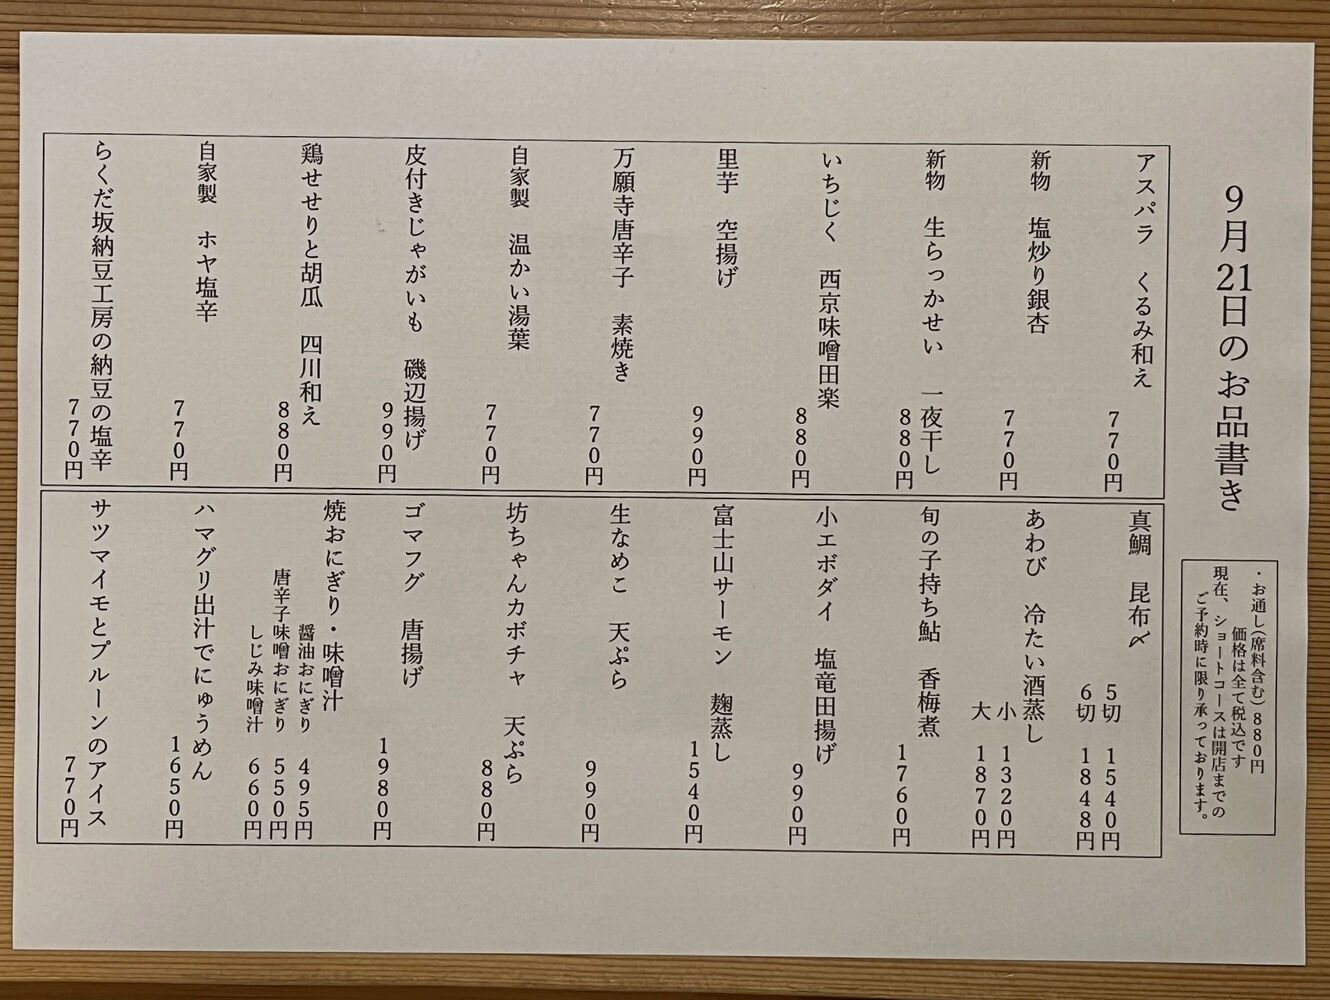 9月21日のお品書き
・お通し(席料含む)880円
価格は全て税込です
現在、ショートコースは開店までの
ご予約時に限り承っております。
アスパラ　くるみ和え
770円
新物　塩炒り銀杏
770円
新物　生らっかせい　一夜干し
880円
いちじく　西京味噌田楽
880円
里芋　空揚げ
990円
万願寺唐辛子　素焼き
770円
自家製　温かい湯葉
770円
皮付きじゃがいも　磯辺揚げ
990円
鶏せせりと胡瓜　四川和え
880円
自家製　ホヤ塩辛
770円
らくだ坂納豆工房の納豆の塩辛
770円
真鯛　昆布〆
5切　1540円
6切　1848円
あわび　冷たい酒蒸し
小　1320円
大　1870円
旬の子持ち鮎　香梅煮
1760円
小エボダイ　塩竜田揚げ
990円
富士山サーモン　麹蒸し
1540円
生なめこ　天ぷら
990円
坊ちゃんカボチャ　天ぷら
880円
ゴマフグ　唐揚げ
1980円
焼おにぎり・味噌汁
醤油おにぎり　495円
唐辛子味噌おにぎり　550円
しじみ味噌汁　660円
ハマグリ出汁でにゅうめん
1650円
サツマイモとプルーンのアイス
770円